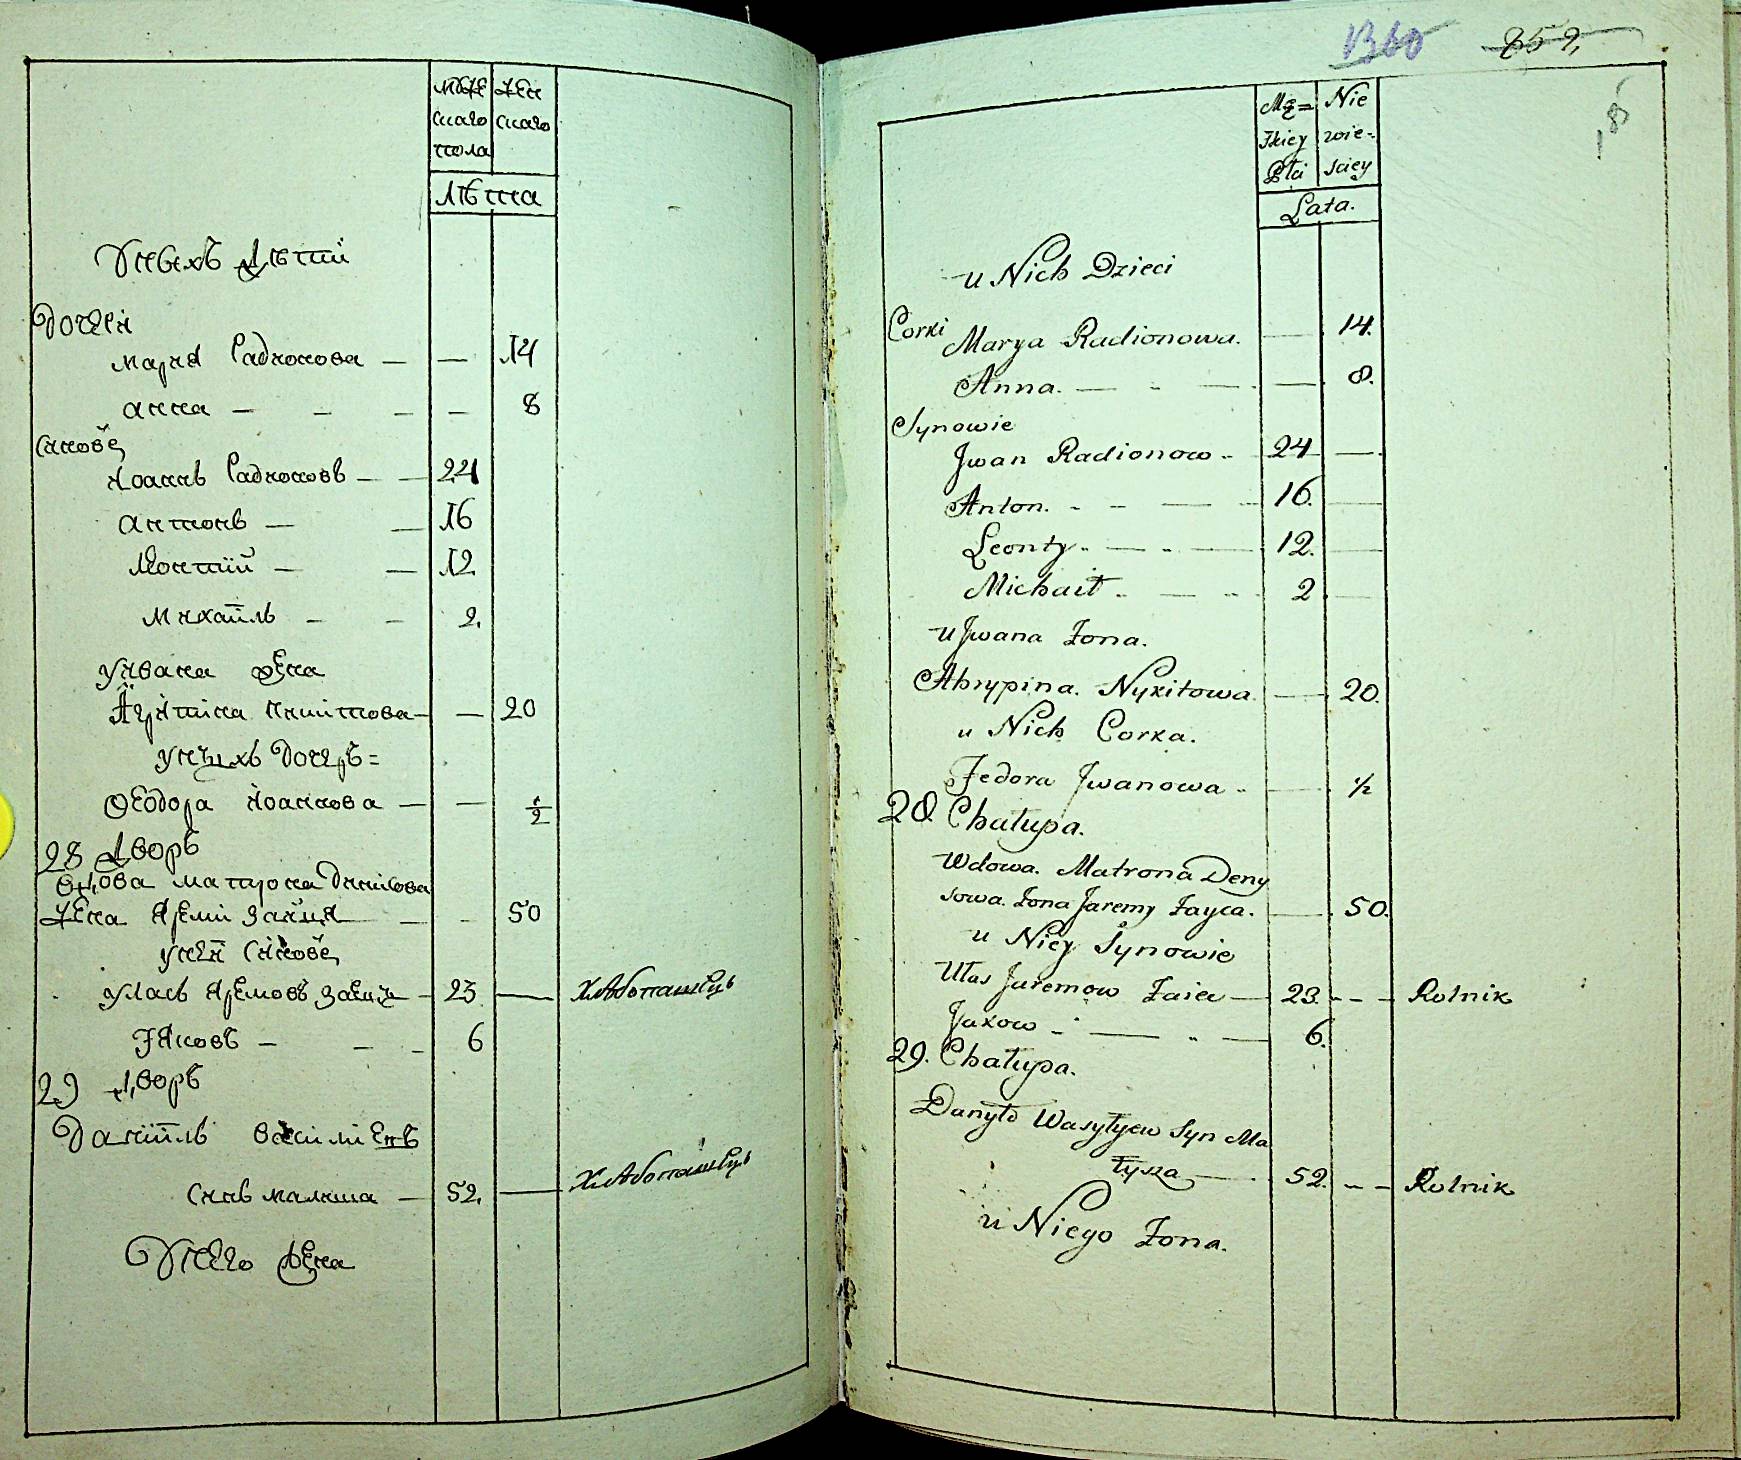 мужескаго пола
женскаго
лѣта
У нихъ дѣти
дочери
Мария Радионова — — 14
Анна — — — — 8
Синове
Иоаннъ Радионовъ — — 24
Антонъ — — 16
Леонтий — — 12
Михаилъ — — 2.
У Ивана жена
Агрипина Никитова — — 20
у нихъ дочеръ =
Феодора Иоаннова — — 1/2
28 дворъ
вдова Матрона Данилова
жена Яреми Зайця — - 50
у неи синове
Уласъ Яремовъ Заець — 23 — хлѣбопашецъ
Яковъ — — - 6
29 дворъ
Даниилъ Василиевъ
Синъ Малиша — 52. — хлѣбопашецъ
У него жена
1360 859,
Mę=
zkiey
Płci
Nie
wie-
sciey
Lata.
u Nich Dzieci
Corki
Marya Radionowa. — 14.
Anna. — - — — 8.
Synowie
Jwan Radionow - 24 —
Anton. - - — - 16. —
Leonty - — - — 12. —
Michaił - — - 2 —
u Jwana Zona.
Ahrypina. Nykitowa — 20.
u Nich Corka.
Fedora Jwanowa - — 1/2
28. Chałupa.
Wdowa. Matrona Deny
sowa. Zona Jaremy Zayca. — 50.
u Niey Synowie
Ułas Jaremow Zaiec — 23. - - — Rolnik
Jakow - — " — 6.
29. Chałupa.
Danyło Wasylyew Syn Ma
łysza — 52. - — Rolnik
u Niego Zona.